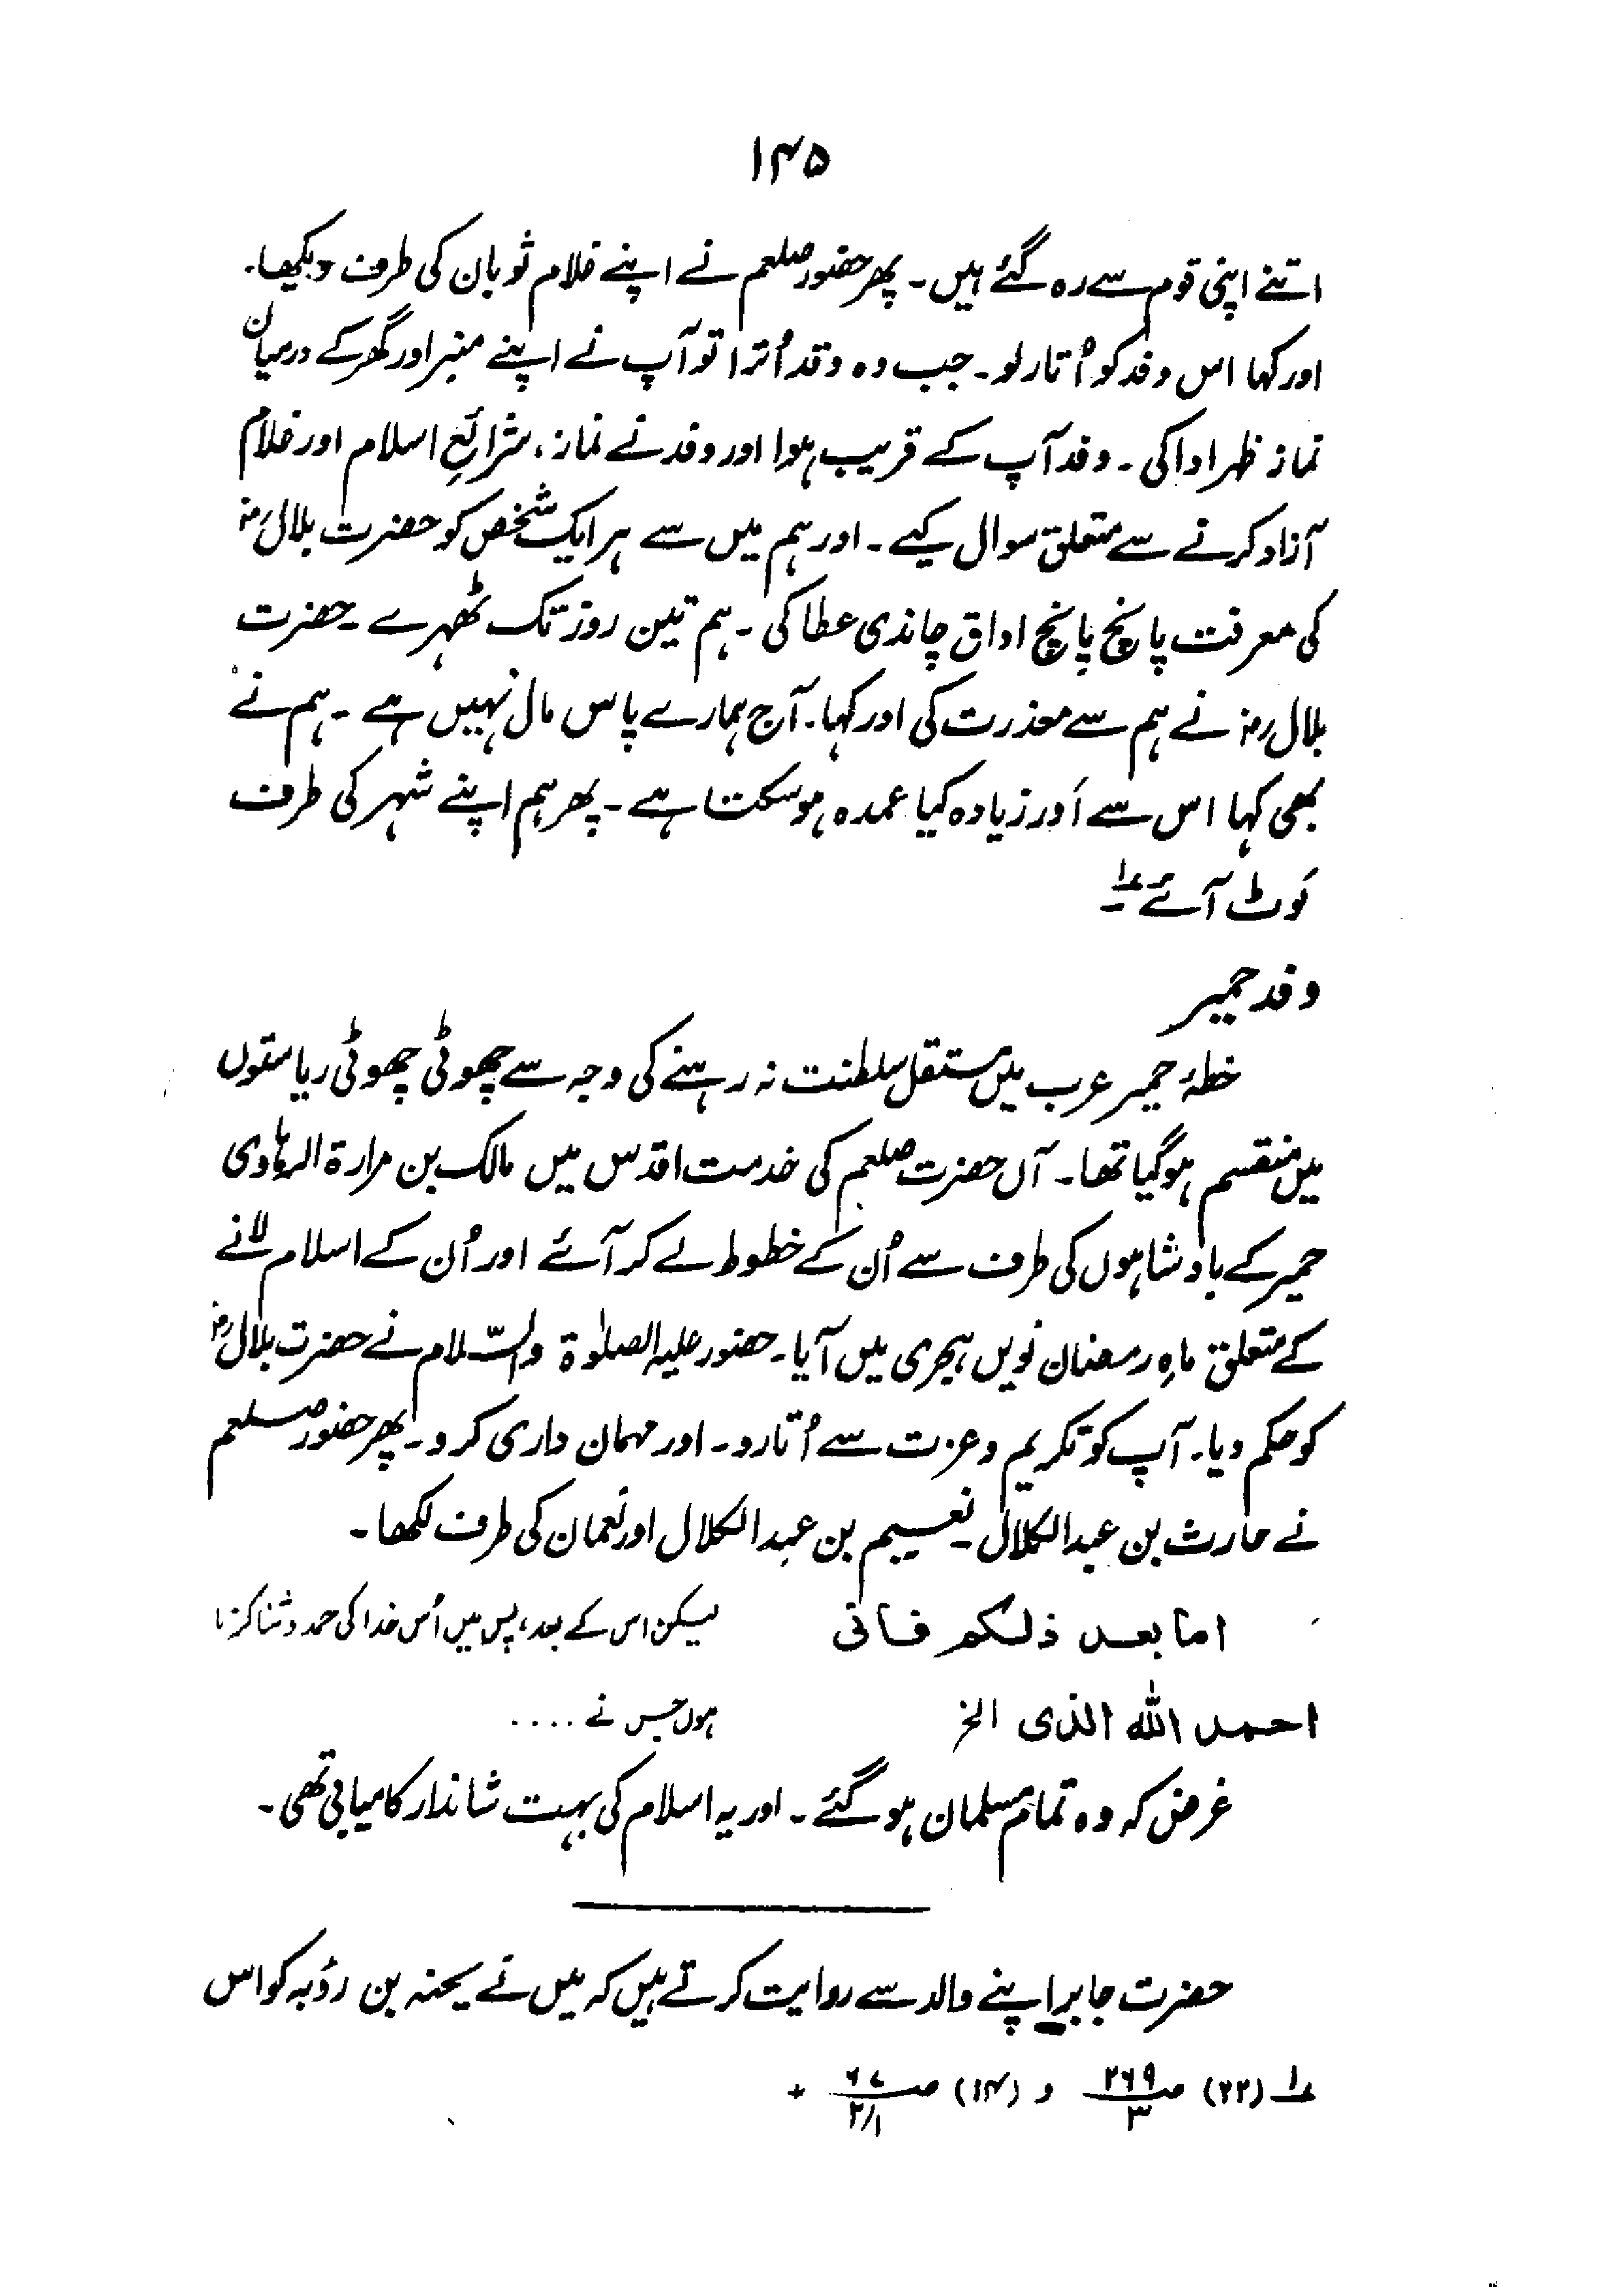 ۱۴۵
اتنے اپنی قوم سے رہ گئے ہیں۔ پھر حضور صلعم نے اپنے غلام ثوبان کی طرف دیکھا۔
اور کہا اس وفد کو اُتار لو۔ جب وہ وفد اُترا تو آپ نے اپنے منبر اور گھر کے درمیان
نماز ظہر ادا کی۔ وفد آپ کے قریب ہوا اور وفد نے نماز، شرائعِ اسلام اور غلام
آزاد کرنے سے متعلق سوال کیے۔ اور ہم میں سے ہر ایک شخص کو حضرت بلال رضؓ
کی معرفت پانچ پانچ اداق چاندی عطا کی۔ ہم تین روز تک ٹھہرے۔ حضرت
بلال رضؓ نے ہم سے معذرت کی اور کہا۔ آج ہمارے پاس مال نہیں ہے۔ ہم نے
بھی کہا اس سے اَور زیادہ کیا عمدہ ہو سکتا ہے۔ پھر ہم اپنے شہر کی طرف
لَوٹ آئے ؎۱
وفد حمیر
خطۂ حمیر عرب میں مستقل سلطنت نہ رہنے کی وجہ سے چھوٹی چھوٹی ریاستوں
میں منقسم ہو گیا تھا۔ آں حضرت صلعم کی خدمت اقدس میں مالک بن مرارۃ الرہاوی
حمیر کے بادشاہوں کی طرف سے اُن کے خطوط لے کر آئے اور اُن کے اسلام لانے
کے متعلق ماہِ رمضان نویں ہجری میں آیا۔ حضور علیہ الصلوٰۃ والسّلام نے حضرت بلال رضؓ
کو حکم دیا۔ آپ کو تکریم وعزت سے اُتارو۔ اور مہمان داری کرو۔ پھر حضور صلعم
نے حارث بن عبدالکلال۔ نعیم بن عبدالکلال اور نعمان کی طرف لکھا۔
اما بعد ذلکم فانی لیکن اس کے بعد، پس میں اُس خدا کی حمد و ثنا کرتا
احمد اللہ الذی الخ ہوں جس نے ....
غرض کہ وہ تمام مسلمان ہو گئے۔ اور یہ اسلام کی بہت شاندار کامیابی تھی۔
حضرت جابر اپنے والد سے روایت کرتے ہیں کہ میں نے یحنہ بن رؤبہ کو اس
؎۱ (۲۳) صـ ۲۶۹/۳ و (۱۴) صـ ۶۷/۲/۱ +